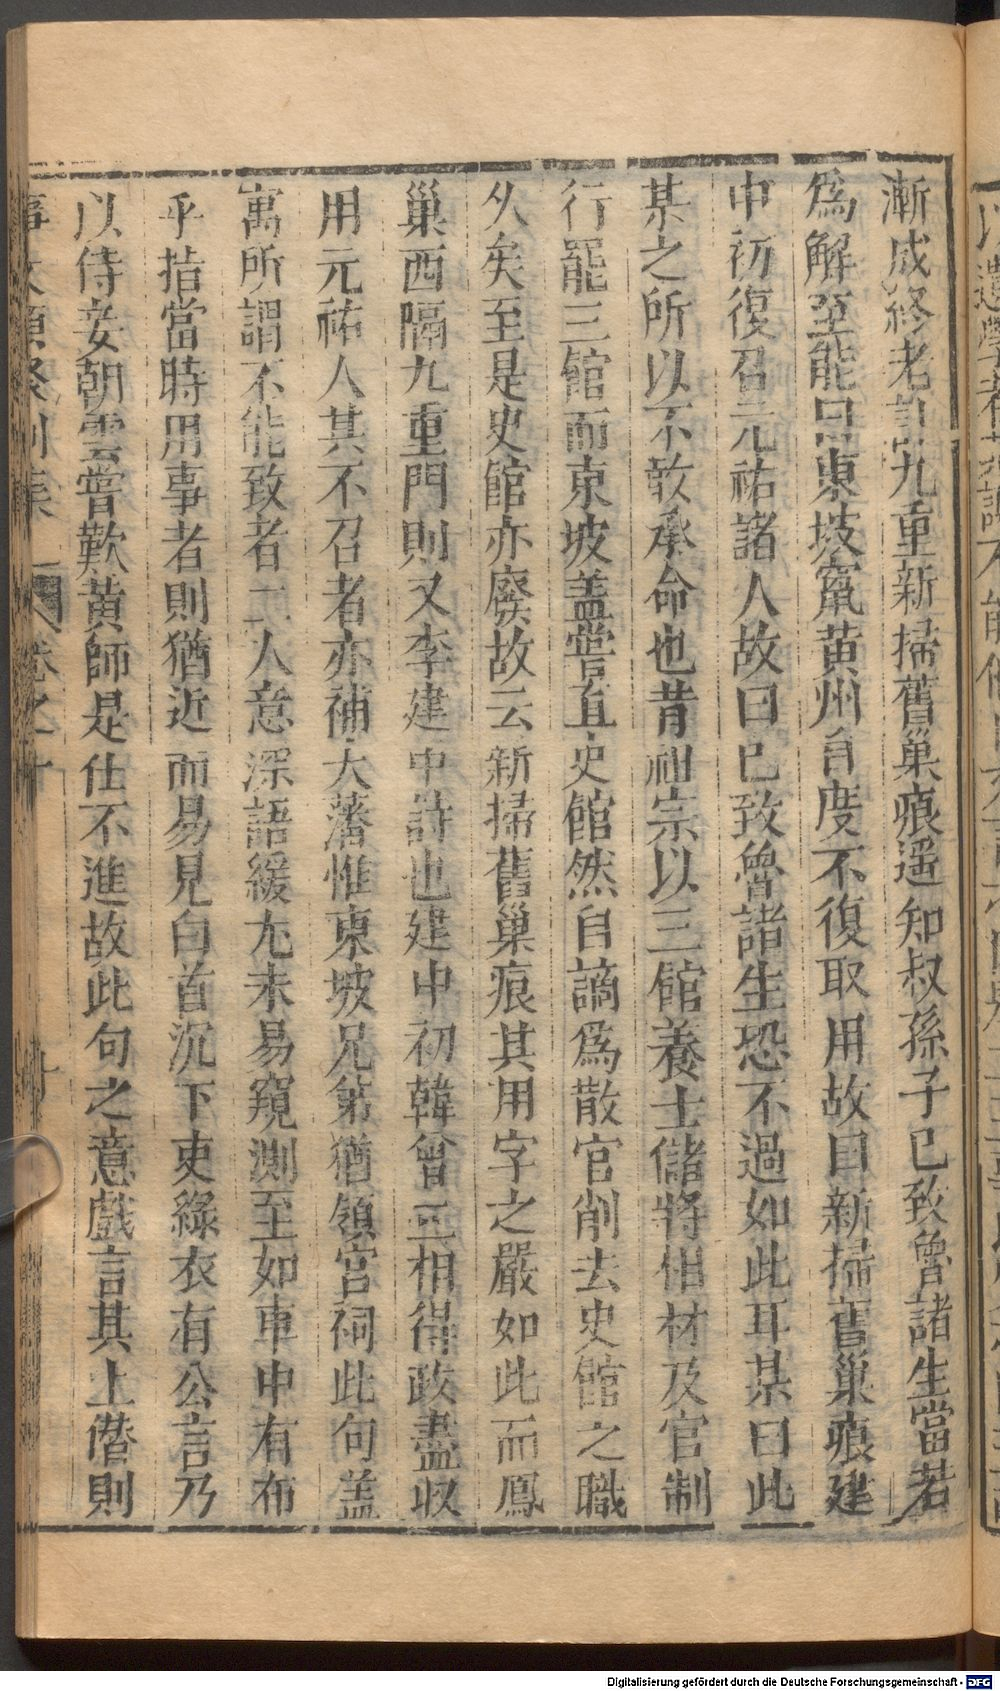 漸成終老計九重新掃舊巢痕遥知叔孫子已致魯諸生當若
爲解至能曰東坡竄黄州自度不復取用故曰新掃舊巢痕建
中初復召元祐諸人故曰已致魯諸生恐不過如此耳某曰此
某之所以不敢承命也昔祖宗以三館養士儲將相材及官制
行罷三館而東坡盖嘗直史館然自謫爲散官削去史館之職
乆矣至是史館亦廢故云新掃舊巢痕其用字之嚴如此而鳳
巢西隔九重門則又李建中詩也建中初韓曾二相得政盡収
用元祐人其不召者亦補大藩惟東坡兄弟猶領宫祠此句盖
寓所謂不能致者二人意深語緩尤未易窺測至如車中有布
乎指當時用事者則猶近而易見白首沉下吏綠衣有公言乃
以侍妾朝雲嘗歎黄師是仕不進故此句之意戲言其上僭則
卷之十
Digitalisierung gefördert durch die Deutsche Forschungsgemeinschaft - DFG